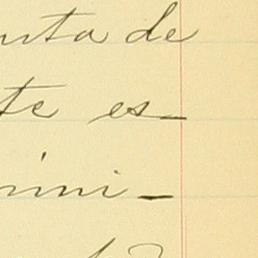 unta de
te es-
mini-